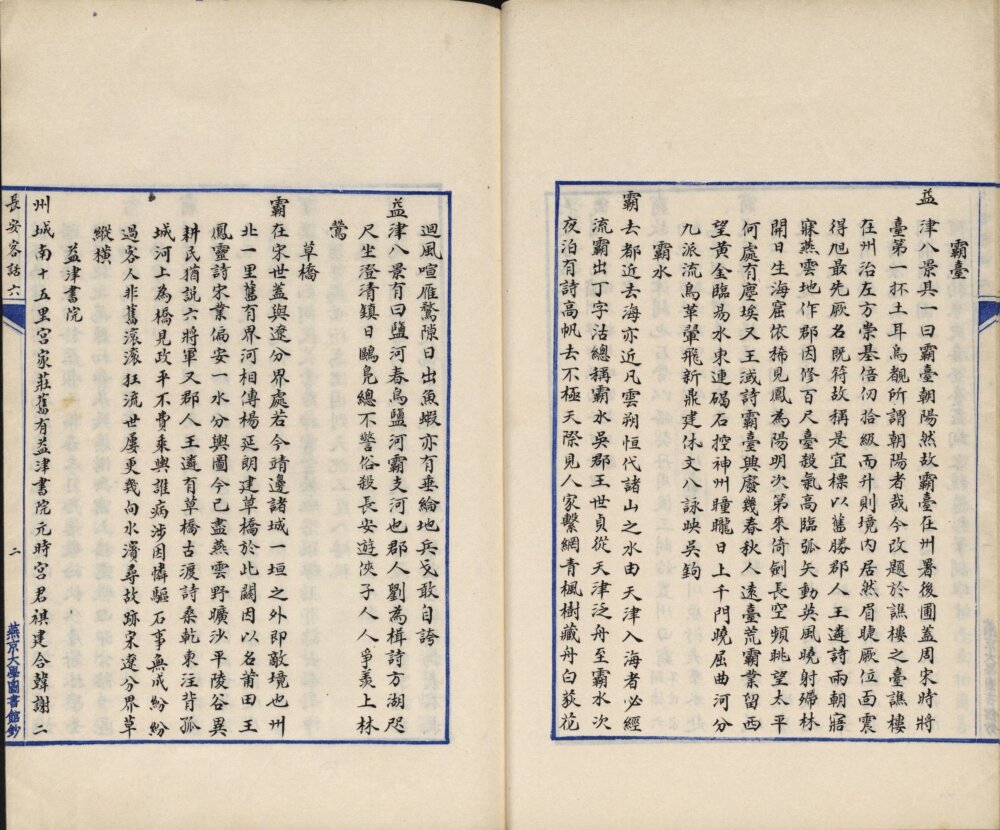 霸臺
益津八景其一曰霸臺朝陽然故霸臺在州署後圃蓋周宋時將
臺第一抔土耳烏覩所謂朝陽者哉今改題於譙樓之臺譙樓
在州治左方崇基倍仞拾級而升則境内居然眉睫厥位面震
得旭最先厥名既符故稱是宜標以舊勝郡人王遴詩兩朝寤
寐燕雲地作郡因修百尺臺殺氣高臨弧矢動英風曉射帰林
開日生海窟依稀見鳳為陽明次第來倚劍長空頻眺望太平
何處有塵埃又王彧詩霸臺興廢幾春秋人遠臺荒霸業留西
望黄金臨易水東連碣石控神州曈曨日上千門曉屈曲河分
九派流鳥革翬飛新鼎建休文八詠映吳鉤
霸水
霸去都近去海亦近凡雲朔恒代諸山之水由天津入海者必經
流霸出丁字沽總稱霸水吳郡王世貞從天津泛舟至霸水次
夜泊有詩高帆去不極天際見人家繫網青楓樹藏舟白荻花
迴風喧雁鶩隙日出魚蝦亦有垂綸地兵戈敢自誇
益津八景有曰鹽河春鳥鹽河霸支河也郡人劉為楫詩方湖咫
尺坐澄清鎮日鷗鳧總不警俗殺長安遊俠子人人爭羨上林
鶯
草橋
霸在宋世蓋與遼分界處若今靖邊諸城一垣之外即敵境也州
北一里舊有界河相傳楊延朗建草橋於此關因以名莆田王
鳳靈詩宋業偏安一水分輿圖今已盡燕雲野曠沙平陵谷異
耕民猶説六將軍又郡人王遴有草橋古渡詩桑乾東注背孤
城河上為橋見政平不費乘輿誰病涉因憐驅石事無成紛紛
過客人非舊滚滚狂流世屢更幾向水濱尋故跡宋遼分界草
縱横
益津書院
州城南十五里宫家莊舊有益津書院元時宫君祺建合韓謝二
長安客話六
二
燕京大學圖書館鈔